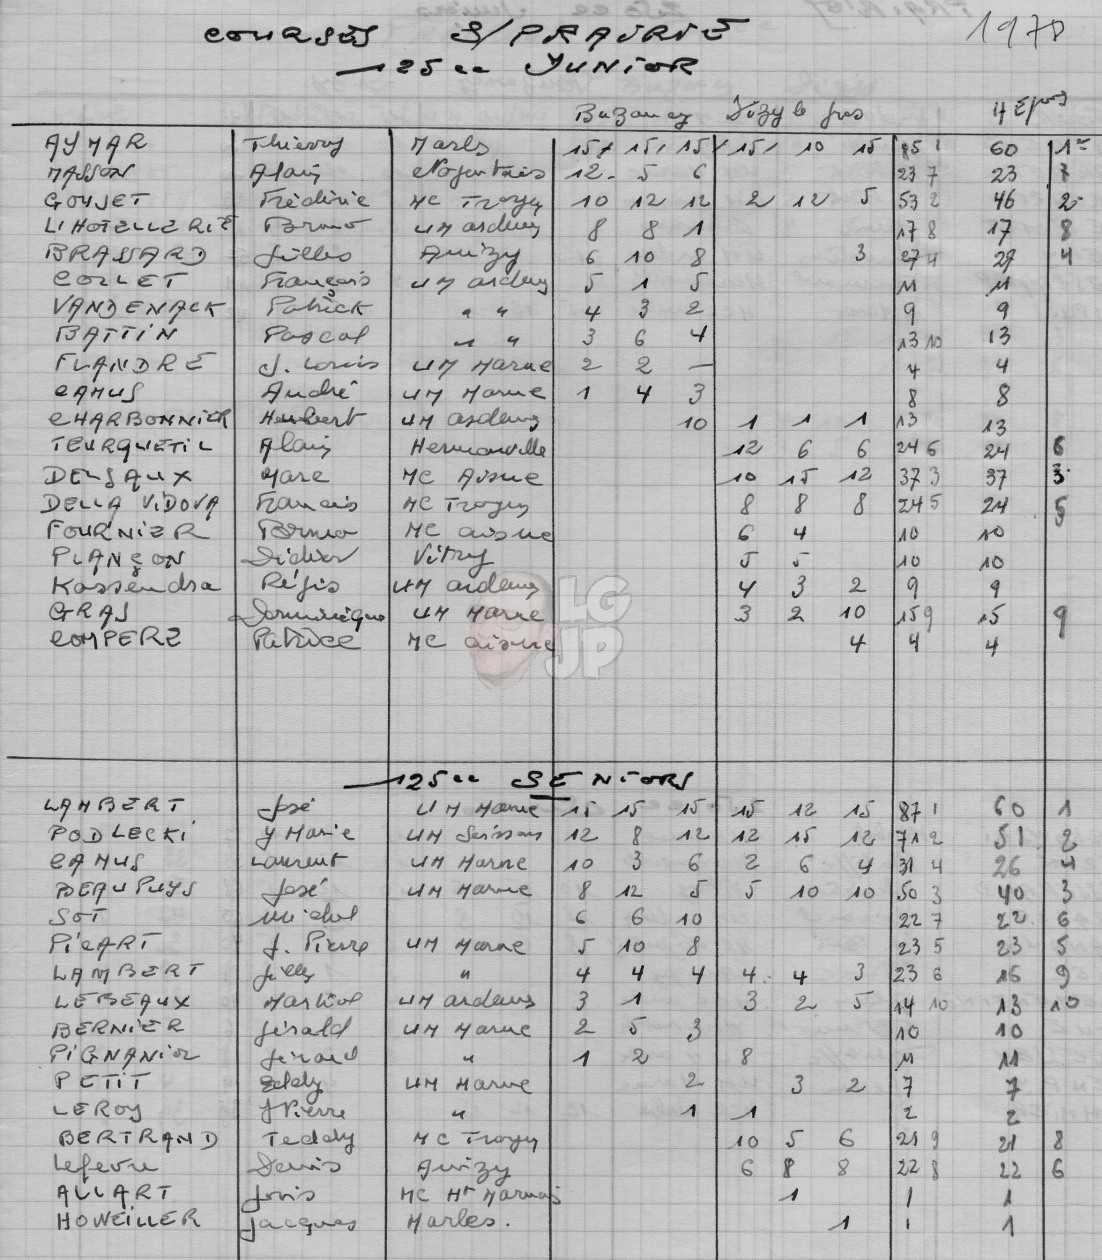 COURSES S/PRAIRIE 1978
125cc JUNIOR
Buzancy Vizy le gros 4 Epr
AYMAR Thierry Marls 15 15 15 15 10 15 85 1 60 1er
MASSON Alain Nogentais 12 5 6 23 7 23 7
GOUJET Frédéric MC Troyes 10 12 12 2 12 5 53 2 46 2
LIHOTELLERIE Bruno UM ardens 8 8 1 17 8 17 8
BRASSARD Gilles Avizy 6 10 8 3 27 4 27 4
COLLET François UM ardens 5 1 5 11 11
VANDENACK Patrick " " 4 3 2 9 9
BATTIN Pascal " " 3 6 4 13 10 13
FLANDRE J. Louis UM Marne 2 2 — 4 4
CAMUS André UM Marne 1 4 3 8 8
CHARBONNIER Hubert UM ardens 10 1 1 1 13 13
TEURQUETIL Alain Hermonville 12 6 6 24 6 24 6
DELSAUX Marc MC Aisne 10 15 12 37 3 37 3
DELLA VIDOVA Francis MC Troyes 8 8 8 24 5 24 5
FOURNIER Bruno MC aisne 6 4 10 10
PLANÇON Didier Vitry 5 5 10 10
Kassendra Régis UM ardens 4 3 2 9 9
GRAS Dominique UM Marne 3 2 10 15 9 15 9
COMPERE Patrice MC aisne 4 4 4
LG
JP
125cc SENIORS
LAMBERT José UM Marne 15 15 15 15 12 15 87 1 60 1
PODLECKI Y Marie UM Soissons 12 8 12 12 15 12 71 2 51 2
CAMUS Laurent UM Marne 10 3 6 2 6 4 31 4 26 4
BEAUPUYS José UM Marne 8 12 5 5 10 10 50 3 40 3
SOT Michel 6 6 10 22 7 22 6
PICART J. Pierre UM Marne 5 10 8 23 5 23 5
LAMBERT Gilles " 4 4 4 4 4 3 23 6 16 9
LEBEAUX Martial UM ardens 3 1 3 2 5 14 10 13 10
BERNIER Gérald UM Marne 2 5 3 10 10
PIGNANIOL Gérard " 1 2 8 11 11
PETIT Eddy UM Marne 2 3 2 7 7
LEROY J Pierre " 1 1 2 2
BERTRAND Teddy MC Troyes 10 5 6 21 9 21 8
Lefevre Denis Avizy 6 8 8 22 8 22 6
ALLART Joris MC Ht Marnais 1 1 1
HOWEILLER Jacques Marles. 1 1 1